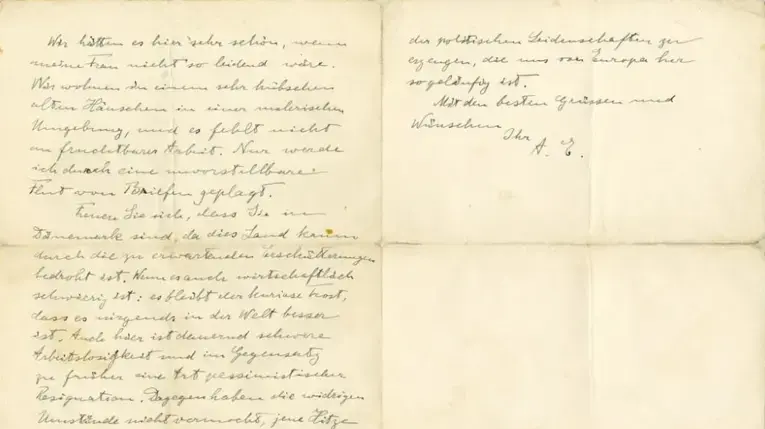 Wir hätten es hier sehr schön, wenn
meine Frau nicht so leidend wäre.
Wir wohnen in einem sehr hübschen
alten Häuschen in einer malerischen
Umgebung, und es fehlt nicht
an fruchtbarer Arbeit. Nur werde
ich durch eine unvorstellbare
Flut von Briefen geplagt.
Freuen Sie sich, dass Sie in
Dänemark sind, da dies Land kaum
durch die zu erwartenden Erschütterungen
bedroht ist. Wenn es auch wirtschaftlich
schwierig ist: es bleibt der Trost,
dass es nirgends in der Welt besser
ist. Auch hier ist dauernd schwere
Arbeitslosigkeit und im Gegensatz
zu früher eine Art pessimistischer
Resignation. Dagegen haben die widrigen
Umstände nicht vermocht, jene Hitze
der politischen Leidenschaften zu
erzeugen, die uns von Europa her
so geläufig ist.
Mit den besten Grüssen und
Wünschen
Ihr
A. E.